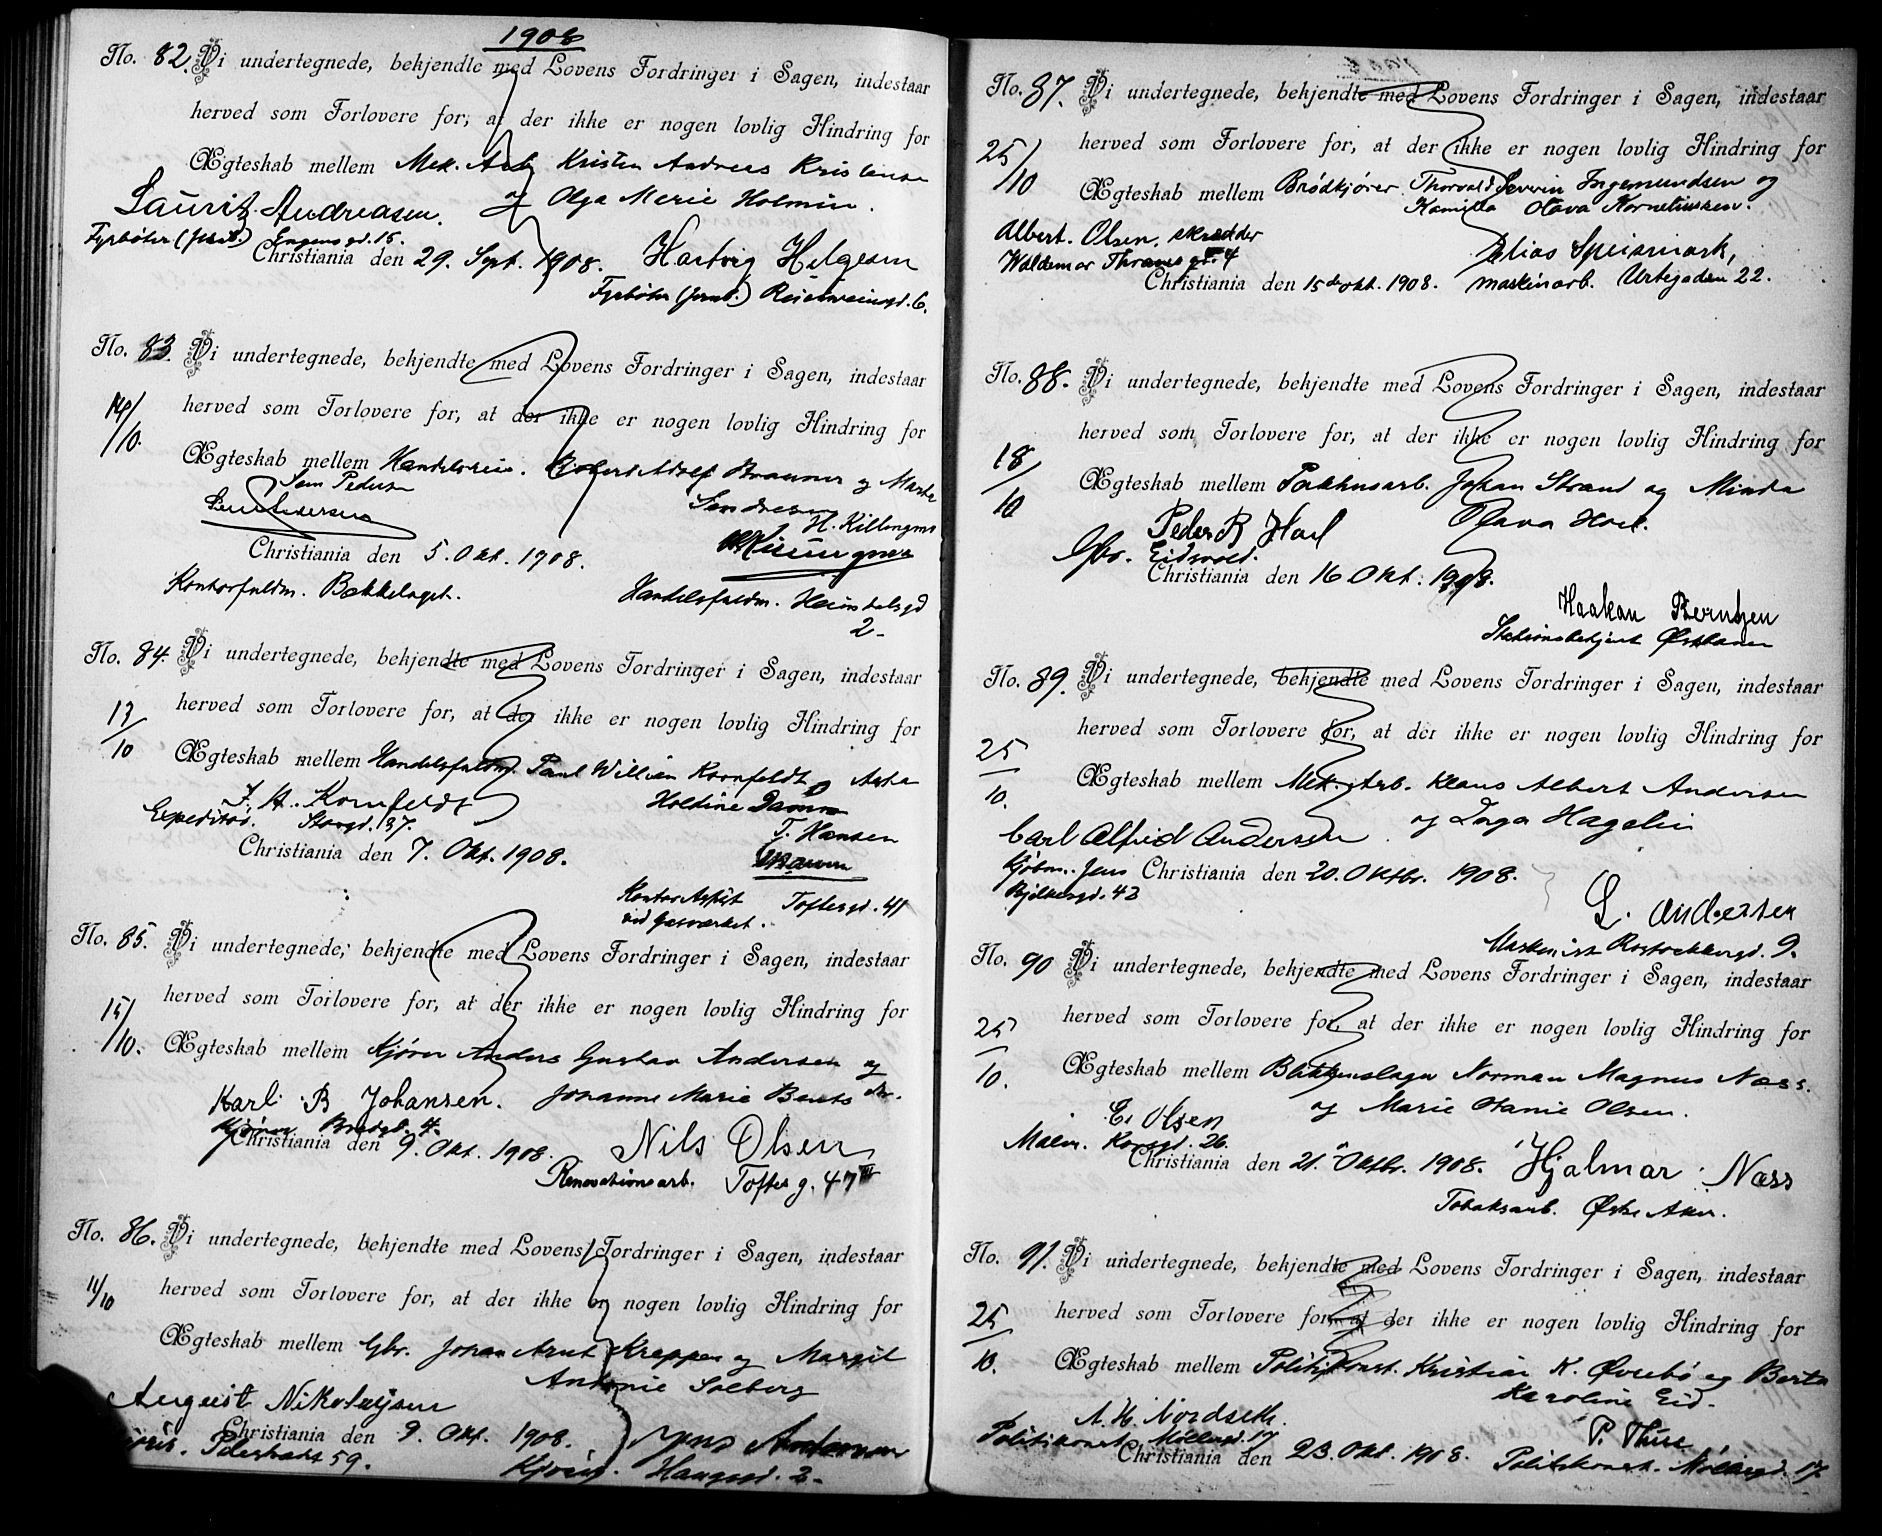 1908
No. 82. Vi undertegnede, bekjendte med Lovens Fordringer i Sagen, indestaar
herved som Forlovere for, at der ikke er nogen lovlig Hindring for
Ægteskab mellem Mek. Arb. Kristen Andreas Kristensen
og Olga Marie Holmin.
Lauritz Andreasen.
Fyrbøter Engensgd. 15.
Christiania den 29. Sept. 1908. Hartvig Helgesen
Fyrbøter 6.
No. 83. Vi undertegnede, bekjendte med Lovens Fordringer i Sagen, indestaar
14/10. herved som Forlovere for, at der ikke er nogen lovlig Hindring for
Ægteskab mellem Adolf og Marta
Pedersen
H. Killingmo
Christiania den 5. Okt. 1908.
Kontorfuldm. Bækkelaget. Handelsfuldm. Heimdalsgd
2-
No. 84. Vi undertegnede, bekjendte med Lovens Fordringer i Sagen, indestaar
13/10 herved som Forlovere for, at der ikke er nogen lovlig Hindring for
Ægteskab mellem Handelsfuldm. Paul Kornfeldt og
J. A. Kornfeldt Damm
Expeditør. Storgd. 37. T. Hansen
Christiania den 7. Okt. 1908.
Toftesgd. 41
ved Gasværket.
No. 85. Vi undertegnede, bekjendte med Lovens Fordringer i Sagen, indestaar
15/10. herved som Forlovere for, at der ikke er nogen lovlig Hindring for
Ægteskab mellem Kjører Anders Gustav Andersen og
Karl B Johansen. Johanne Marie
Kjører 4.
Christiania den 9. Okt. 1908. Nils Olsen
Renovationsarb. Toftesg. 47 III
No. 86. Vi undertegnede, bekjendte med Lovens Fordringer i Sagen, indestaar
11/10 herved som Forlovere for, at der ikke er nogen lovlig Hindring for
Ægteskab mellem Gbr. Johan Arnt Kreppen og Margit
Antonie Solberg
August Nikolaysen
Christiania den 9. Okt. 1908. Jens
59. Haugsgd. 2-
No. 87. Vi undertegnede, bekjendte med Lovens Fordringer i Sagen, indestaar
25/10 herved som Forlovere for, at der ikke er nogen lovlig Hindring for
Ægteskab mellem Brødkjører Thorvald Severin Ingemundsen og
Kamilla Olava Korneliussen.
Albert. Olsen. skrædder
Waldemar Thranes gd. 4 Elias Speismark,
Christiania den 15de okt. 1908. maskinarb. Urtegaden 22.
No. 88. Vi undertegnede, bekjendte med Lovens Fordringer i Sagen, indestaar
18/10 herved som Forlovere for, at der ikke er nogen lovlig Hindring for
Ægteskab mellem Pakhusarb. Johan Strand og Minda
Peder B Hoel Olava Hoel.
Gbr. Eidsvold.
Christiania den 16 Okt. 1908.
Haakan Berntzen
Stationsbetjent Østbanen
No. 89. Vi undertegnede, bekjendte med Lovens Fordringer i Sagen, indestaar
25/10. herved som Forlovere for, at der ikke er nogen lovlig Hindring for
Ægteskab mellem Mek. Arb. Klaus Albert Andersen
og Inga Hagelin
Carl Alfred Andersen
Kjøbm. Jens Christiania den 20. Oktbr. 1908.
Bjelkesgd. 43 L. Andersen
Maskinist Rostockkergd. 9.
No. 90 Vi undertegnede, bekjendte med Lovens Fordringer i Sagen, indestaar
25/10. herved som Forlovere for, at der ikke er nogen lovlig Hindring for
Ægteskab mellem Blikkenslager Norman Magnus Næss.
og Marie Otanie Olsen.
E. Olsen
Malm. Korsgd. 26.
Christiania den 21. Oktbr. 1908. Hjalmar Næss
Tobaksarb. Østre Aker.
No. 91. Vi undertegnede, bekjendte med Lovens Fordringer i Sagen, indestaar
25/10. herved som Forlovere for, at der ikke er nogen lovlig Hindring for
Ægteskab mellem Politikonst. Kristian K. Øvrebø og Berta
Karoline Eid.
A. H. Nordseth.
Politikonst. Møllergd. 17 P. Thue
Christiania den 23. Okt. 1908. Politikonst. Møllergd. 17.